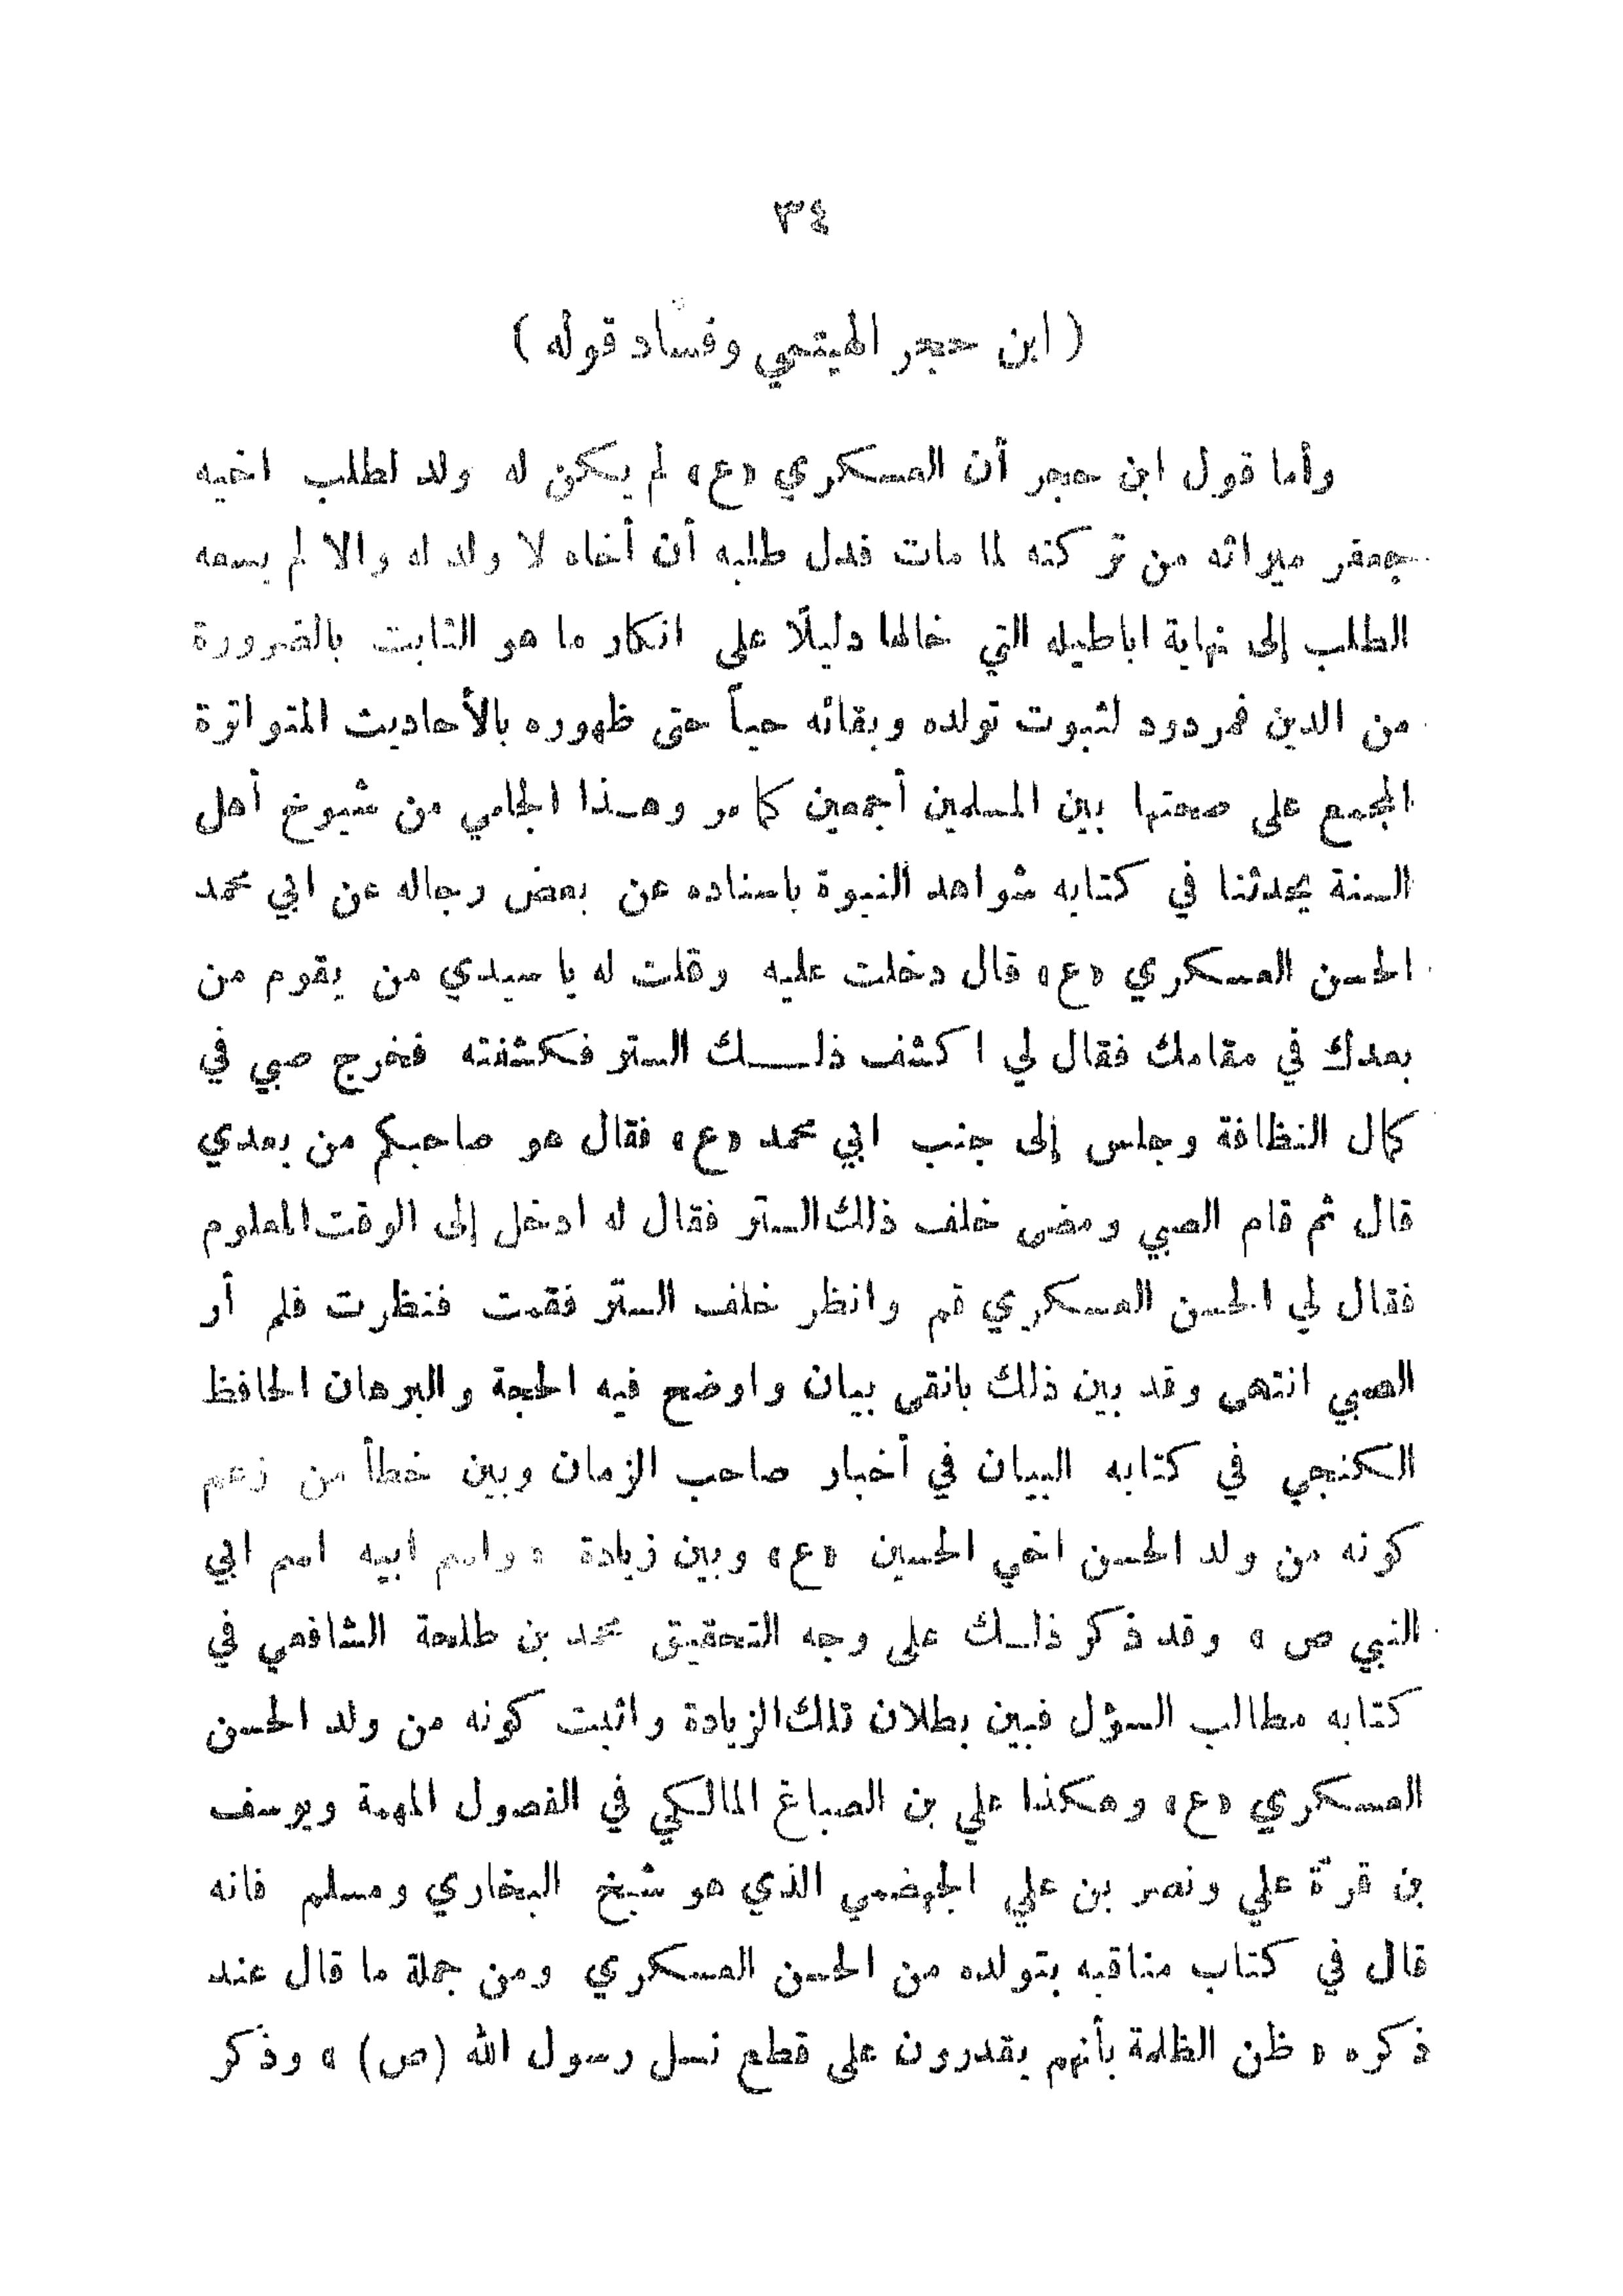 ٣٤
( ابن حجر الهيتمي وفساد قوله )
وأما قول ابن حجر أن العسكري «ع» لم يكن له ولد لطلب اخيه
جعفر ميراثه من تركته لما مات فدل طلبه أن أخاه لا ولد له والا لم يسعه
الطلب إلى نهاية اباطيله التي خالها دليلًا على انكار ما هو الثابت بالضرورة
من الدين فمردود لثبوت تولده وبقائه حياً حتى ظهوره بالأحاديث المتواترة
المجمع على صحتها بين المسلمين أجمعين كما مر وهذا الجامي من شيوخ أهل
السنة يحدثنا في كتابه شواهد النبوة باسناده عن بعض رجاله عن ابي محمد
الحسن العسكري «ع» قال دخلت عليه وقلت له يا سيدي من يقوم من
بعدك في مقامك فقال لي اكشف ذلك الستر فكشفته فخرج صبي في
كمال النظافة وجلس إلى جنب ابي محمد «ع» فقال هو صاحبكم من بعدي
قال ثم قام الصبي ومضى خلف ذلك الستر فقال له ادخل إلى الوقت المعلوم
فقال لي الحسن العسكري قم وانظر خلف الستر فقمت فنظرت فلم أر
الصبي انتهى وقد بين ذلك بانقى بيان واوضح فيه الحجة والبرهان الحافظ
الكنجي في كتابه البيان في أخبار صاحب الزمان وبين خطأ من زعم
كونه من ولد الحسن اخي الحسين «ع» وبين زيادة « واسم ابيه اسم ابي
النبي ص » وقد ذكر ذلك على وجه التحقيق محمد بن طلحة الشافعي في
كتابه مطالب السؤل فبين بطلان تلك الزيادة واثبت كونه من ولد الحسن
العسكري «ع» وهكذا علي بن الصباغ المالكي في الفصول المهمة ويوسف
بن قرة علي ونصر بن علي الجهضمي الذي هو شيخ البخاري ومسلم فانه
قال في كتاب مناقبه بتولده من الحسن العسكري ومن جملة ما قال عند
ذكره « ظن الظلمة بأنهم يقدرون على قطع نسل رسول الله (ص) » وذكر